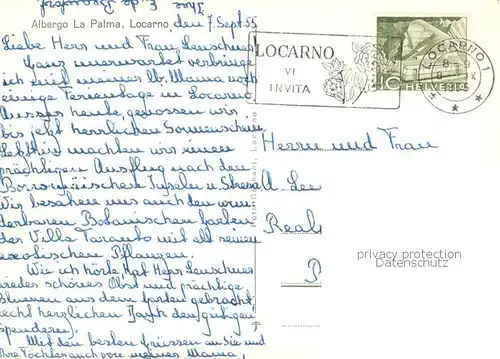 Ihre E. de Rosenfeld
Albergo La Palma, Locarno
den 7 Sept. 55
Liebe Herr und Frau Leuschner!
Ganz unerwartet verbringe
ich mit meiner lb. Mama noch
einige Ferientage in Locarno.
Ausser heute, genossen wir
bis jetzt herrlichen Sonnenschein.
Letzthin machten wir einen
prächtigen Ausflug nach den
Borromäischen Inseln u. Stresa.
Wir besahen uns auch den wun-
derbaren Botanischen Garten
der Villa Taranto mit all seinen
exotischen Pflanzen.
Wie ich hörte, hat Herr Leuschner
schönes Obst und prächtige
Blumen aus dem Garten gebracht,
recht herzlichen Dank den gütigen
Spendern.
Mit den besten Grüssen an Sie und
Ihre Töchter auch von meiner Mama,
LOCARNO
VI
INVITA
LOCARNO 1
10
HELVETIA
Herrn und Frau
A Leu
Reals
P
privacy protection
Datenschutz